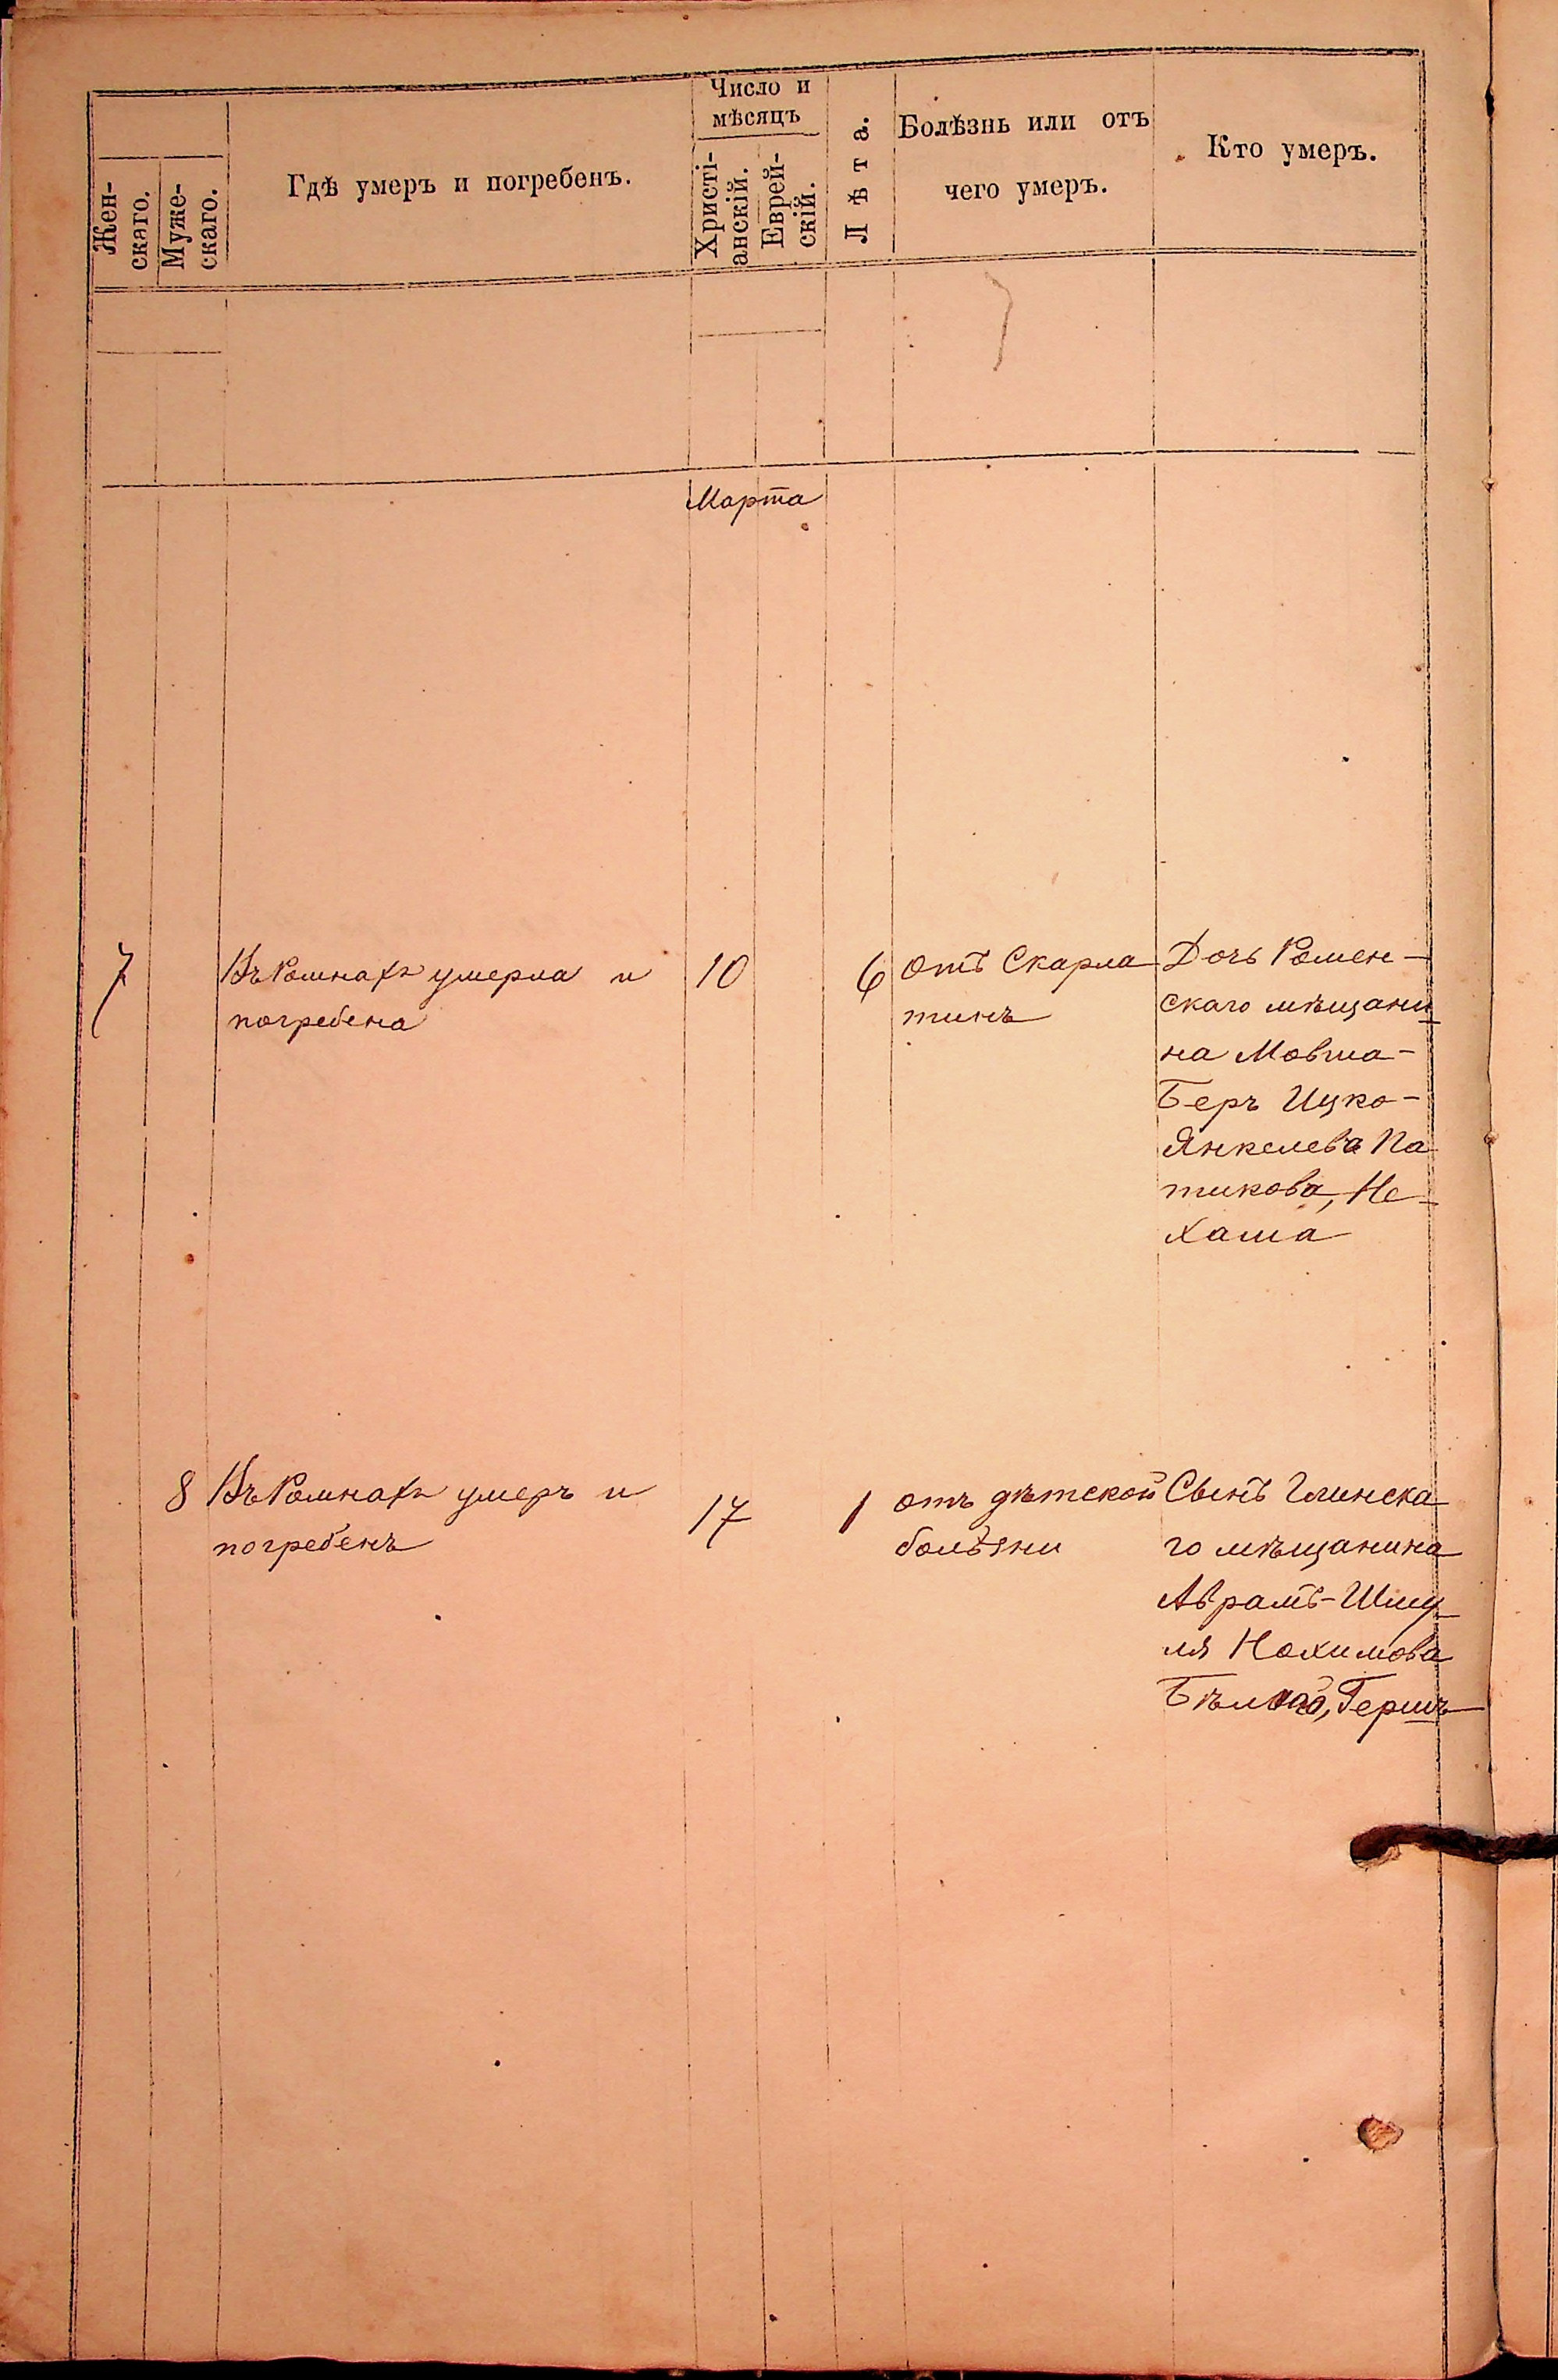 Жен-
скаго.
Муже-
скаго.
Гдѣ умеръ и погребенъ.
Число и
мѣсяцъ
Христі-
анскій.
Еврей-
скій.
Лѣта.
Болѣзнь или отъ
чего умеръ.
Кто умеръ.
Марта
7 Въ Ромнахъ умерла и 10 6 отъ Скарла
погребена
тинъ
Дочь Ромен-
скаго мѣщани
на Мовша-
Беръ Ицко-
Янкелева Па
тикова, Не-
хама
8 Въ Ромнахъ умеръ и 17 1 отъ дѣтской
погребенъ
болѣзни
Сынъ Глинска
го мѣщанина
Аврамъ-Шму
ля Нохимова
Гершъ